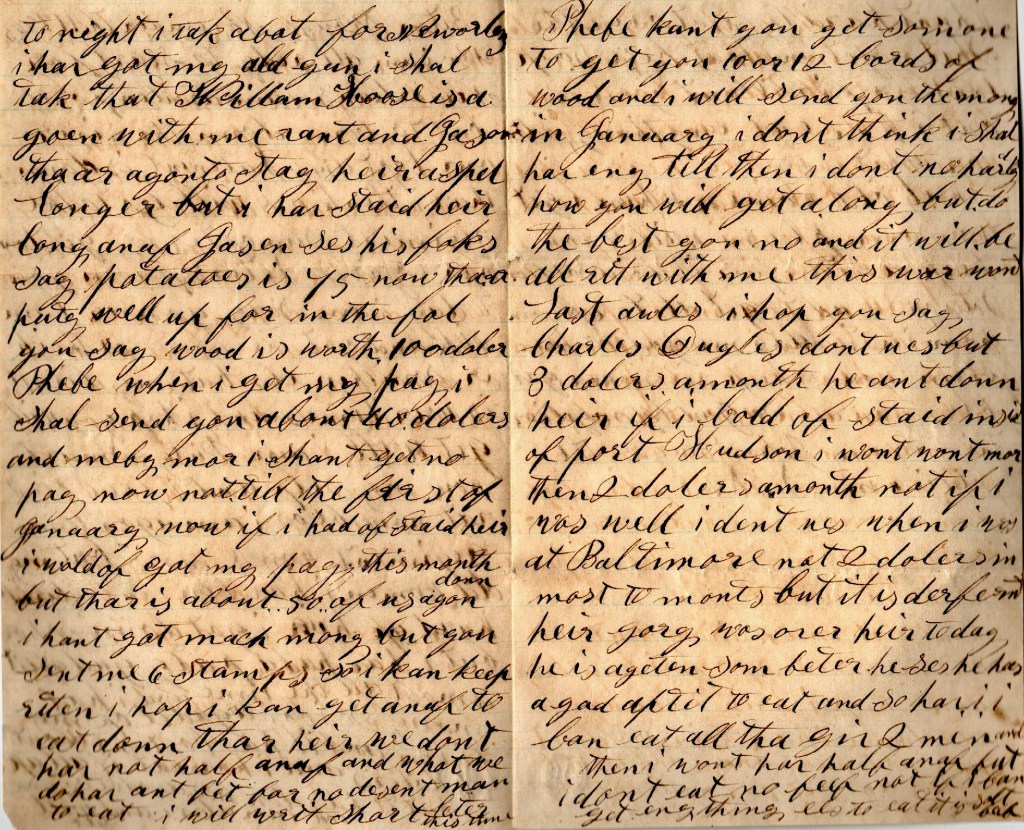 to night i tak a boat for
i har got my old gun i shal
tak that William Hoose is a
goen with me rant and Jason
tha ar agon to stay heir a spel
longer but i har staid heir
long anaf Jasen ses his foks
say potatoes is 75 now tha a
puty well up for in the fal
you say wood is worth 100 doler
Phebe when i get my pay i
shal send you about 40 dolers
and meby mor i shant get no
pay now not till the first of
Januarry now if i had of staid heir
i wold of got my pay this month
but thar is about 50 of us agon down
i hant got mach mony but you
sent me 6 stamps so i kan keep
riten i hop i kan get anaf to
eat down thar heir we dont
har not half anaf and what we
do har ant fet for no desent man
to eat i will writ short leter this time
Phebe kant you get som one
to get you 10 or 12 cords of
wood and i will send you the mony
in Januarry i dont think i shal
har eny till then i dont no harly
how you will get along but do
the best you no and it will be
all rit with me this war wont
Last awles i hop you say
Charles Dugles dont ues but
3 dolers a month he ant down
heir if i cold of staid in sid
of fort Hudson i wont wont mor
then 2 dolers a month not if i
was well i dont ues when i was
at Baltimore not 2 dolers in
most to monts but it is derfernt
heir gorg was orer heir to day
he is a geten som beter he ses he has
a gad aptit to eat and so har i i
can eat all tha gir 2 men and
then i wont har half anaf but
i dont eat no beef not if i can
get eny thing els to eat it is salt